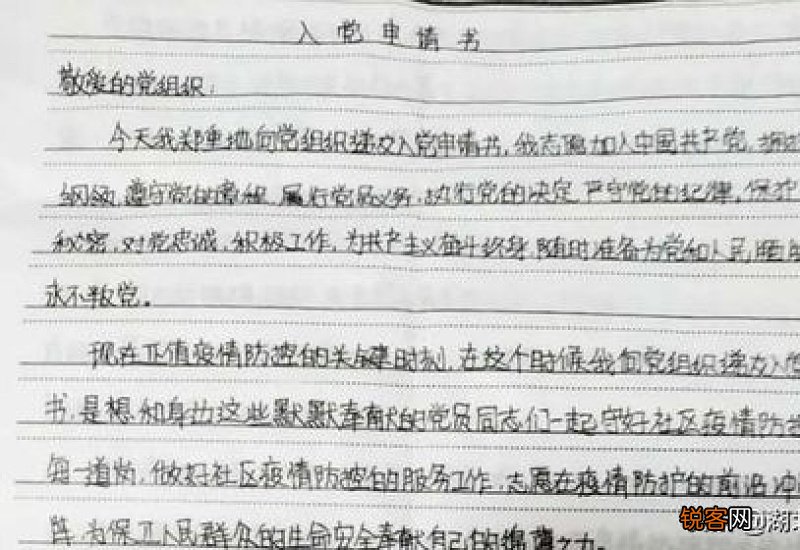 入党申请书
敬爱的党组织:
今天我郑重地向党组织递交入党申请书,我志愿加入中国共产党,拥护
纲领,遵守党的章程,履行党员义务,执行党的决定,严守党的纪律,保护
秘密,对党忠诚,积极工作,为共产主义奋斗终身,随时准备为党和人民牺
永不叛党。
现在正值疫情防控的关键时刻,在这个时候我向党组织递交入党
书,是想和身边这些默默奉献的党员同志们一起守好社区疫情防控
每一道岗,做好社区疫情防控的服务工作,志愿在疫情防护的前沿冲
阵,为保卫人民群众的生命安全奉献自己的绵薄之力。
锐客网